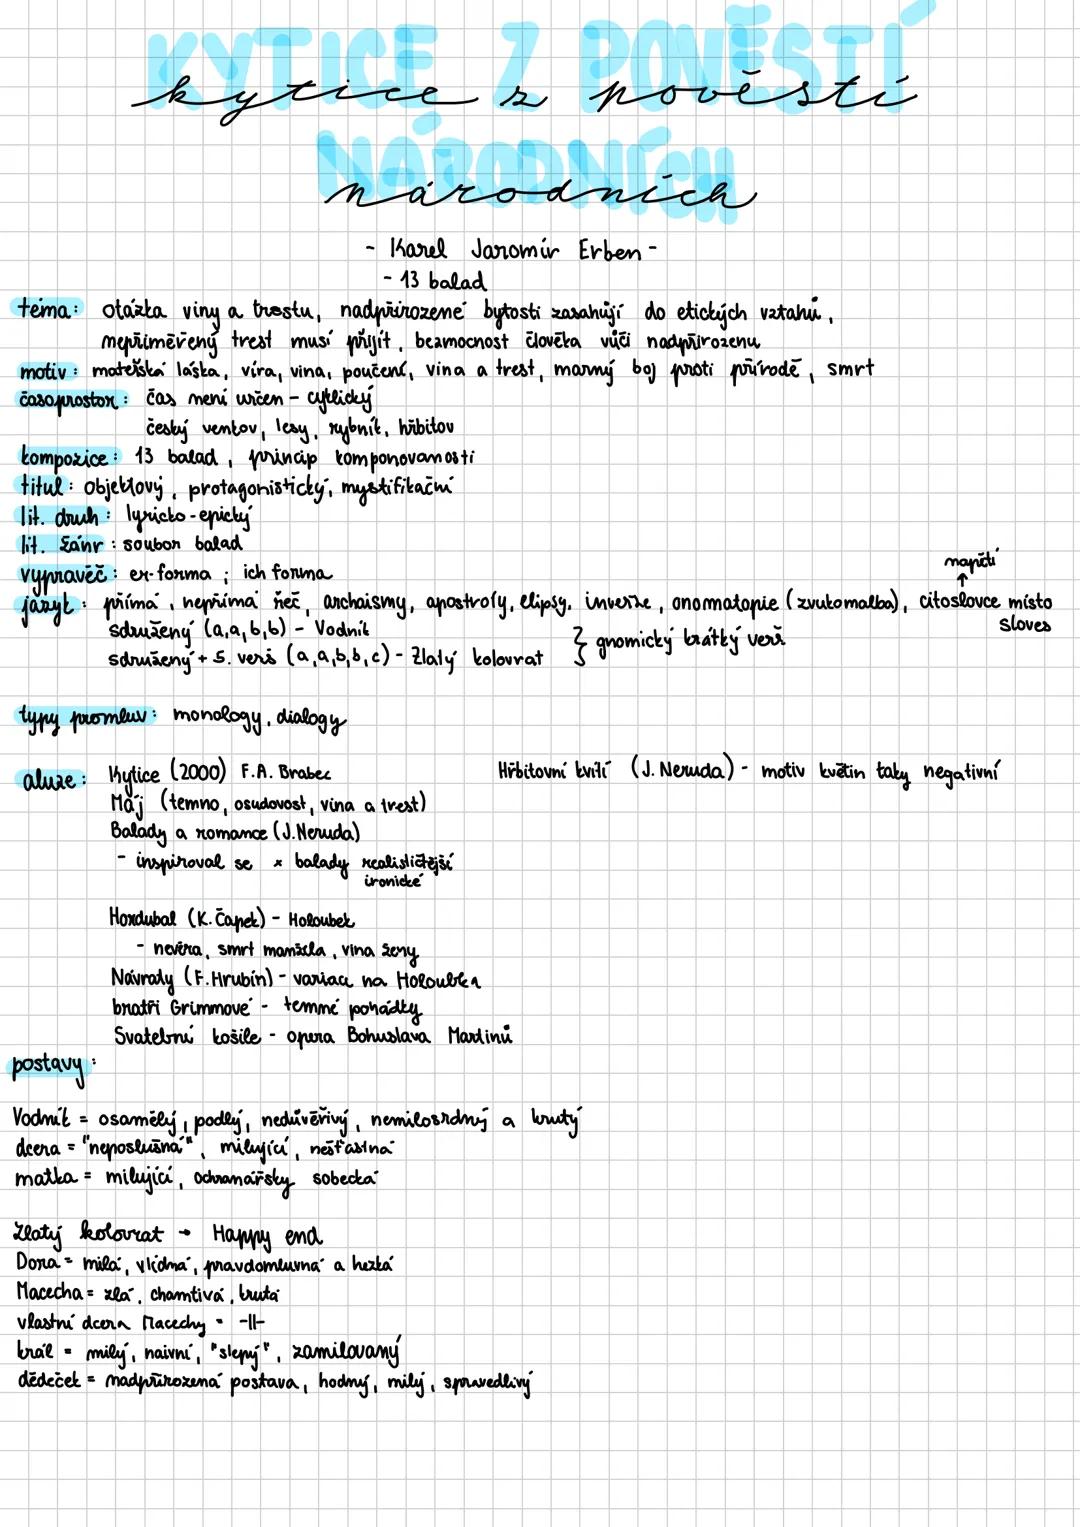 KYTICE Z POVĚSTÍ
kytice z pověstí
NÁRODNÍCH
národních
- Karel Jaromír Erben -
- 13 balad
téma: otázka viny a trestu, nadpřirozené bytosti zasahují do etických vztahů,
nepřiměřený trest musí přijít, bezmocnost člověka vůči nadpřirozenu
motiv: mateřská láska, víra, vina, poučení, vina a trest, marný boj proti přírodě, smrt
časoprostor: čas není určen - cyklický
český venkov, lesy, rybník, hřbitov
kompozice: 13 balad, princip komponovanosti
titul: objektový, protagonistický, mystifikační
lit. druh: lyricko-epický
lit. žánr: soubor balad
vypravěč: er-forma; ich forma
napětí
↑
jazyk: přímá, nepřímá řeč, archaismy, apostrofy, elipsy, inverze, onomatopie (zvukomalba), citoslovce místo
sloves
sdružený (a,a,b,b) - Vodník
sdružený + 5. verš (a,a,b,b,c) - Zlatý kolovrat } gnomický krátký verš
typy promluv: monology, dialogy
aluze: Kytice (2000) F.A. Brabec
Hřbitovní kvítí (J. Neruda) - motiv květin taky negativní
Máj (temno, osudovost, vina a trest)
Balady a romance (J.Neruda)
- inspiroval se × balady realističtější
ironické
Hordubal (K. Čapek) - Holoubek
- nevěra, smrt manžela, vina ženy
Návraty (F. Hrubín) - variace na Holoubka
bratři Grimmové - temné pohádky
Svatební košile - opera Bohuslava Martinů
postavy:
Vodník = osamělý, podlý, nedůvěřivý, nemilosrdný a krutý
dcera = "neposlušná", milující, nešťastná
matka = milující, ochranářsky sobecká
Zlatý kolovrat → Happy end
Dora = milá, vlídná, pravdomluvná a hezká
Macecha = zlá, chamtivá, krutá
vlastní dcera Macechy = -||-
král = milý, naivní, "slepý", zamilovaný
dědeček = nadpřirozená postava, hodný, milý, spravedlivý